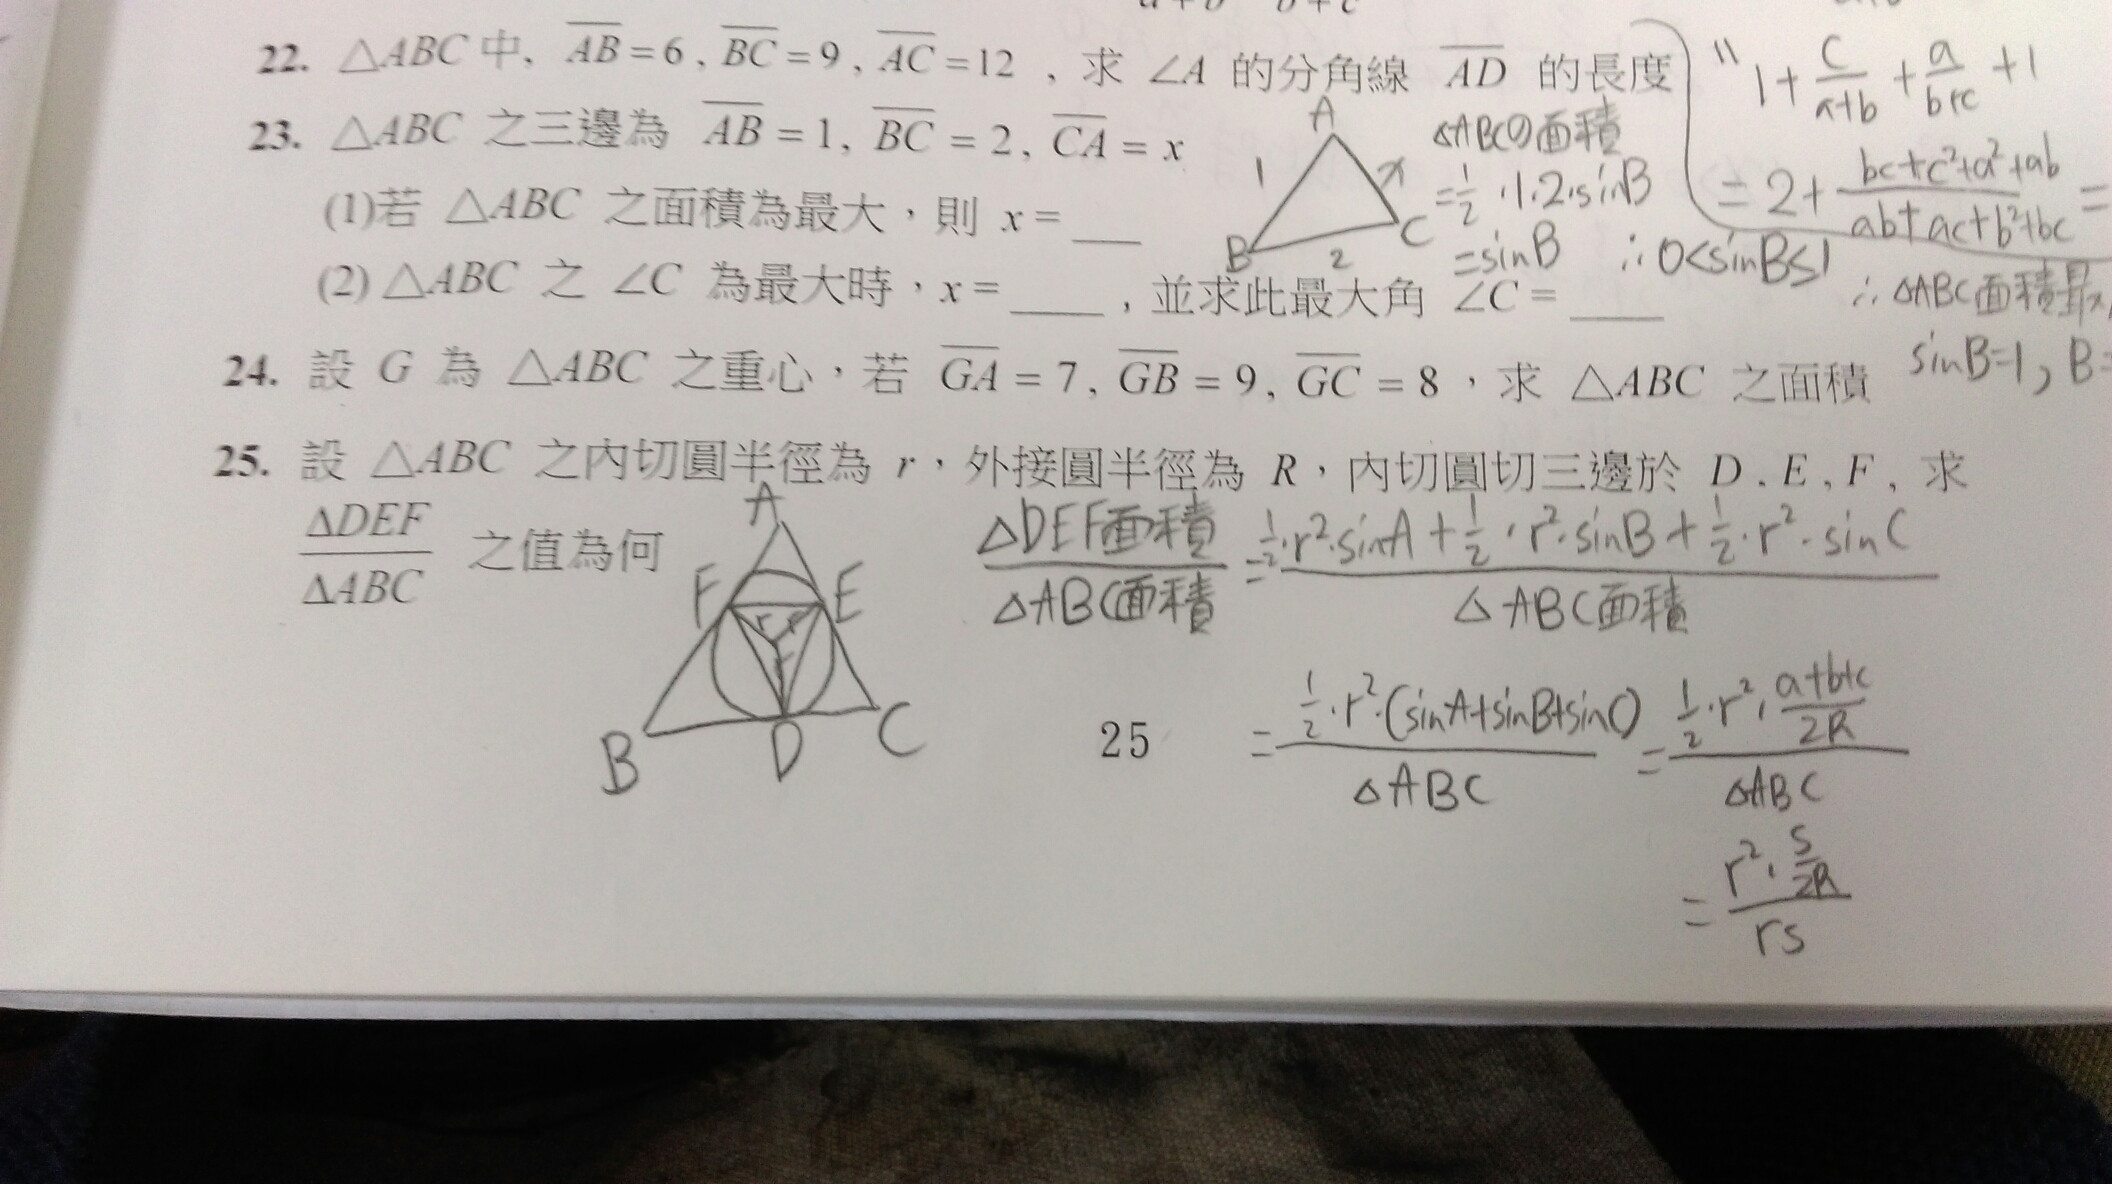 22. △ABC 中, AB = 6 , BC = 9 , AC = 12 , 求 ∠A 的分角線 AD 的長度
23. △ABC 之三邊為 AB = 1, BC = 2, CA = x
(1)若 △ABC 之面積為最大,則 x = ___
(2) △ABC 之 ∠C 為最大時,x = ____ , 並求此最大角 ∠C = ____
A
1
x
B
2
C
△ABCの面積
= 1/2 ·1·2·sinB
= sinB ∴ 0<sinB≤1
∴ △ABC面積最大
sinB=1, B=
" 1+ c/(a+b) + a/(b+c) +1
= 2+ (bc+c²+a²+ab)/(ab+ac+b²+bc) =
24. 設 G 為 △ABC 之重心,若 GA = 7, GB = 9, GC = 8 ,求 △ABC 之面積
25. 設 △ABC 之內切圓半徑為 r,外接圓半徑為 R,內切圓切三邊於 D . E , F , 求
ΔDEF/ΔABC 之值為何
A
F
E
r r
r
B
D
C
△DEF面積/△ABC面積 = (1/2·r²·sinA + 1/2·r²·sinB + 1/2·r²·sinC)/△ABC面積
= (1/2·r²·(sinA+sinB+sinC))/△ABC = (1/2·r²·(a+b+c)/2R)/△ABC
= (r²·s/2R)/rs
25